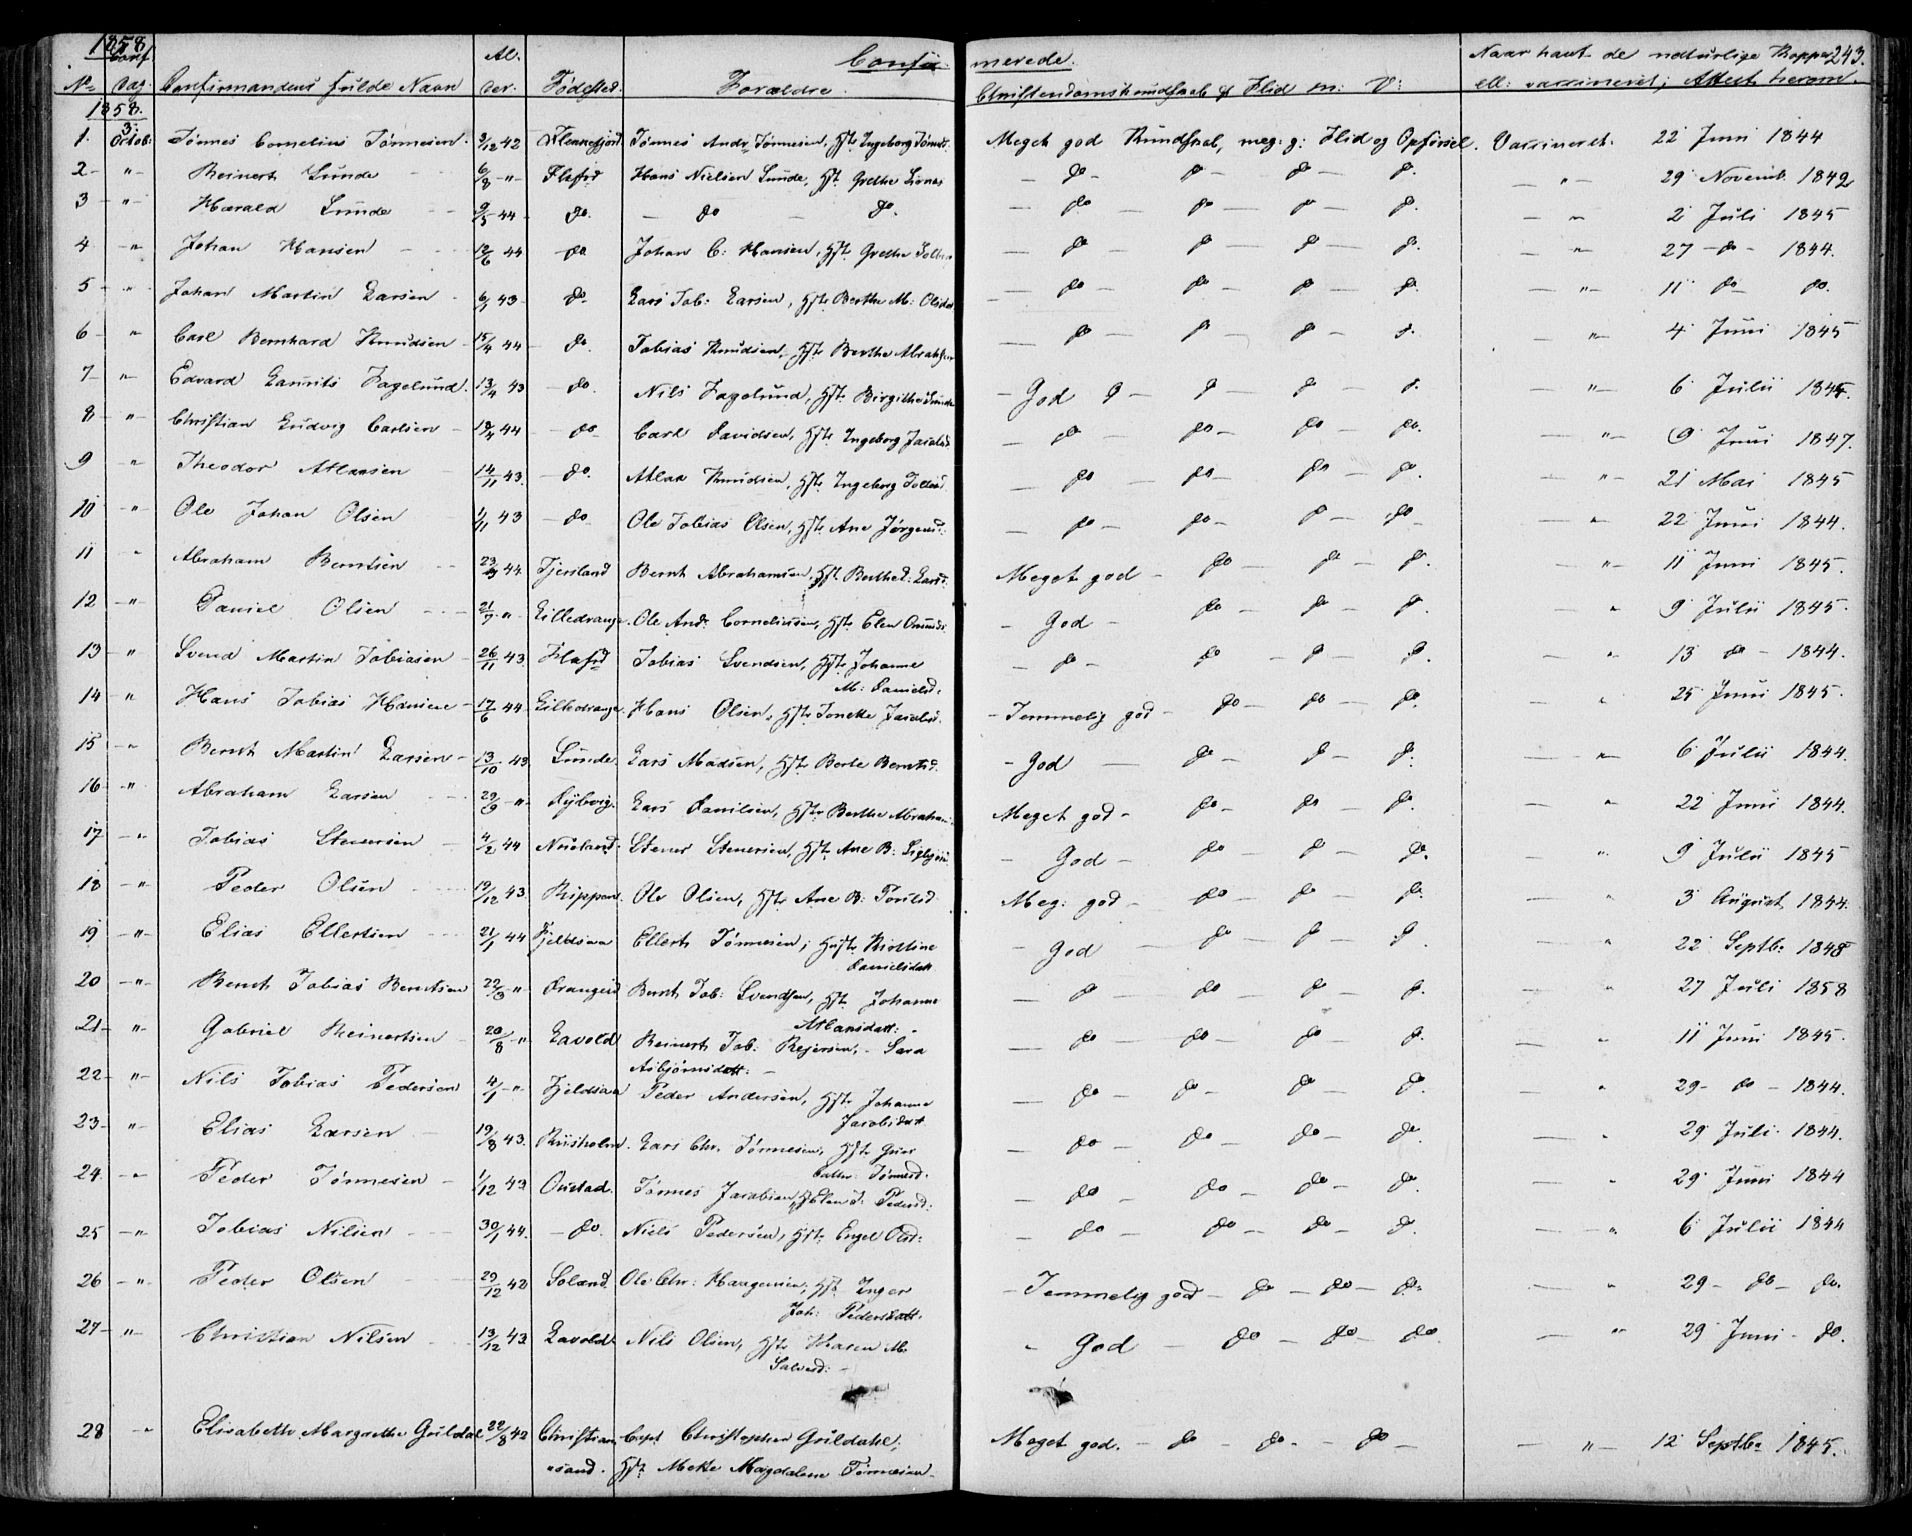 1858. Confirmerede. 243.
No Conf. Dag. Confirmandens fulde Navn Alder. Fødested. Forældre. Christendomskundskab & Flid m: V: Naar havt de naturlige Kopper ell: vaccineret; Attest herom.
1858.
1. 3. Octob: Tønnes Cornelius Tønnesen. 3/12 42 Flekkefjord Tønnes Andr. Tønnesen, Hstr. Ingeborg Meget god Kundskab, meg: g: Flid og Opførsel. Vaccineret. 22 Juni 1844
2 - " - Reinert Sunde 6/8 - " - Flefjd Hans Nielsen Sunde, Hst. Grethe - do - do - do - do. - " - 29 Novemb. 1842
3 - " - Harald Sunde 9/5 44 do. - do - do. - do - do - do - do. - " - 2 Juli 1845
4 - " Johan Hansen 12/6 44 - do Johan C: Hansen, Hst. Grethe - do - do - do - do. " 27 - do - 1844.
5 - " Johan Martin Larsen 6/1 43 - do Lars Tob: Larsen, Hstr Berthe M: - do - do - do - do. - " - 11 do - do.
6 - " Carl Bernhard Knudsen 15/4 44 - do. Tobias Knudsen, Hstr Berthe - do - do - do - do. - " - 4 Juni 1845
7 - " - Edvard Laurits Fagelund. 13/4 43 - do. Nils Fagelund, Hst. Birgithe Sunde - God do - do - do - do. - " - 6 Julii 1845.
8 - " - Christian Ludvig Carlsen 19/4 44 - do - Carl Davidsen, Hstr. Ingeborg - do - do - do - do. - " - 9 Juni 1847.
9 " Theodor Atlaksen 14/11 43. - do. Atlak Knudsen, Hstr. Ingeborg - do - do - do - do. - " - 21 Mai 1845
10 " Ole Johan Olsen 1/11 43 - do Ole Tobias Olsen, Hst. Ane - do - do - do - do - " 22 Juni 1844.
11 " Abraham Berntsen 44 Fjersland Bernt Abrahamsen, Hst. Berthe Meget god - do - do - do. - " - 11 Juni 1845.
12 - " - Daniel Olsen 21/7 - " - Lilledrange. Ole And: Corneliussen, Hstr. Elen - God - do - do - do. - " 9 Julii 1845.
13 - " Svend Martin Tobiasen 26/11 43. Flefjd Tobias Svendsen, Hstr. Johanne M: Danielsd: - do - do - do - do. - " 13 do - 1844.
14 " Hans Tobias Hansen - 17/6 44. Lilledrange. Hans Olsen, Hstr. - Temmelig god - do - do - do. - " 25 Juni 1845.
15 - " Bernt Martin Larsen - 13/10 43 Sunde. Lars Madsen, Hstr. Berte Berntsd. - God - do - do - do. - " - 6 Julii 1844.
16 - " Abraham Larsen 29/9 - " - Lars Danilsen, Hstr Berthe Meget god - do - do - do. - " 22 Juni 1844.
17 - " Tobias Stenersen 4/2 44 Stener Stenersen, Hstr. Ane B: - God - do - do - do. " 9 Julii 1845
18 - " - Peder Olsen 19/12 43. Ole Olsen, Hstr. Ane B: Meg: god - do - do - do. " 3 August 1844.
19 - " - Elias Ellertsen 21/1 44 Fjeldsaa Ellert Tønnesen; Hustr Kirstine Danielsdatt - God - do - do - do. " 22 Septb: 1848
20 - " - Bernt Tobias Berntsen 22/3 - " Drangeid Bernt Tob: Svendsen, Hstr. Johanne Atlaksdatt: - do - do - do - do. " 27 Juli 1858
21 - " Gabriel Reinertsen 20/8 - " Lavold Reinert Tob: Rejersen, - Sara Asbjørnsdatt: - do - do - do - do. " 11 Juni 1845.
22 - " - Nils Tobias Pedersen 4/1 - " Fjeldsaa Peder Andersen, Hstr Johanne Jacobsdatt - do - do - do - do " 29 - do - 1844.
23 - " Elias Larsen 19/8 43. Lars Chr. Tønnesen, Hstr - do - do - do - do. " 29 Juli 1844.
24 " Peder Tønnesen 1/12 43 Oustad. Tønnes Jacobsen, Hst Elen T: Pedersd: - do - do - do - do. " 29 Juni 1844
25 - " - Tobias Nilsen 30/1 44. - do. Niels Pedersen, Hstr. Engel - do - do - do - do. - " 6 Julii 1844
26 - " Peder Olsen 29/12 42 Ole Chr: Haagensen, Hstr. Inger Joh: Pedersdatt. - Temmelig god - do - do - do - " 29 - do - do.
27 - " - Christian Nilsen 13/12 43. Lavold Nils Olsen, Hstr Karen M. Salvesd: - - God - do - do - do - " 29 Juni - do.
28 - " Elisabeth Margrethe Guldal 22/8 42 Christiansand. Capt Christopher Guldahl, Hstr. Mette Magdalene Tønnesen. Meget god. - do - do - do - - " - 12 Septb: 1845.